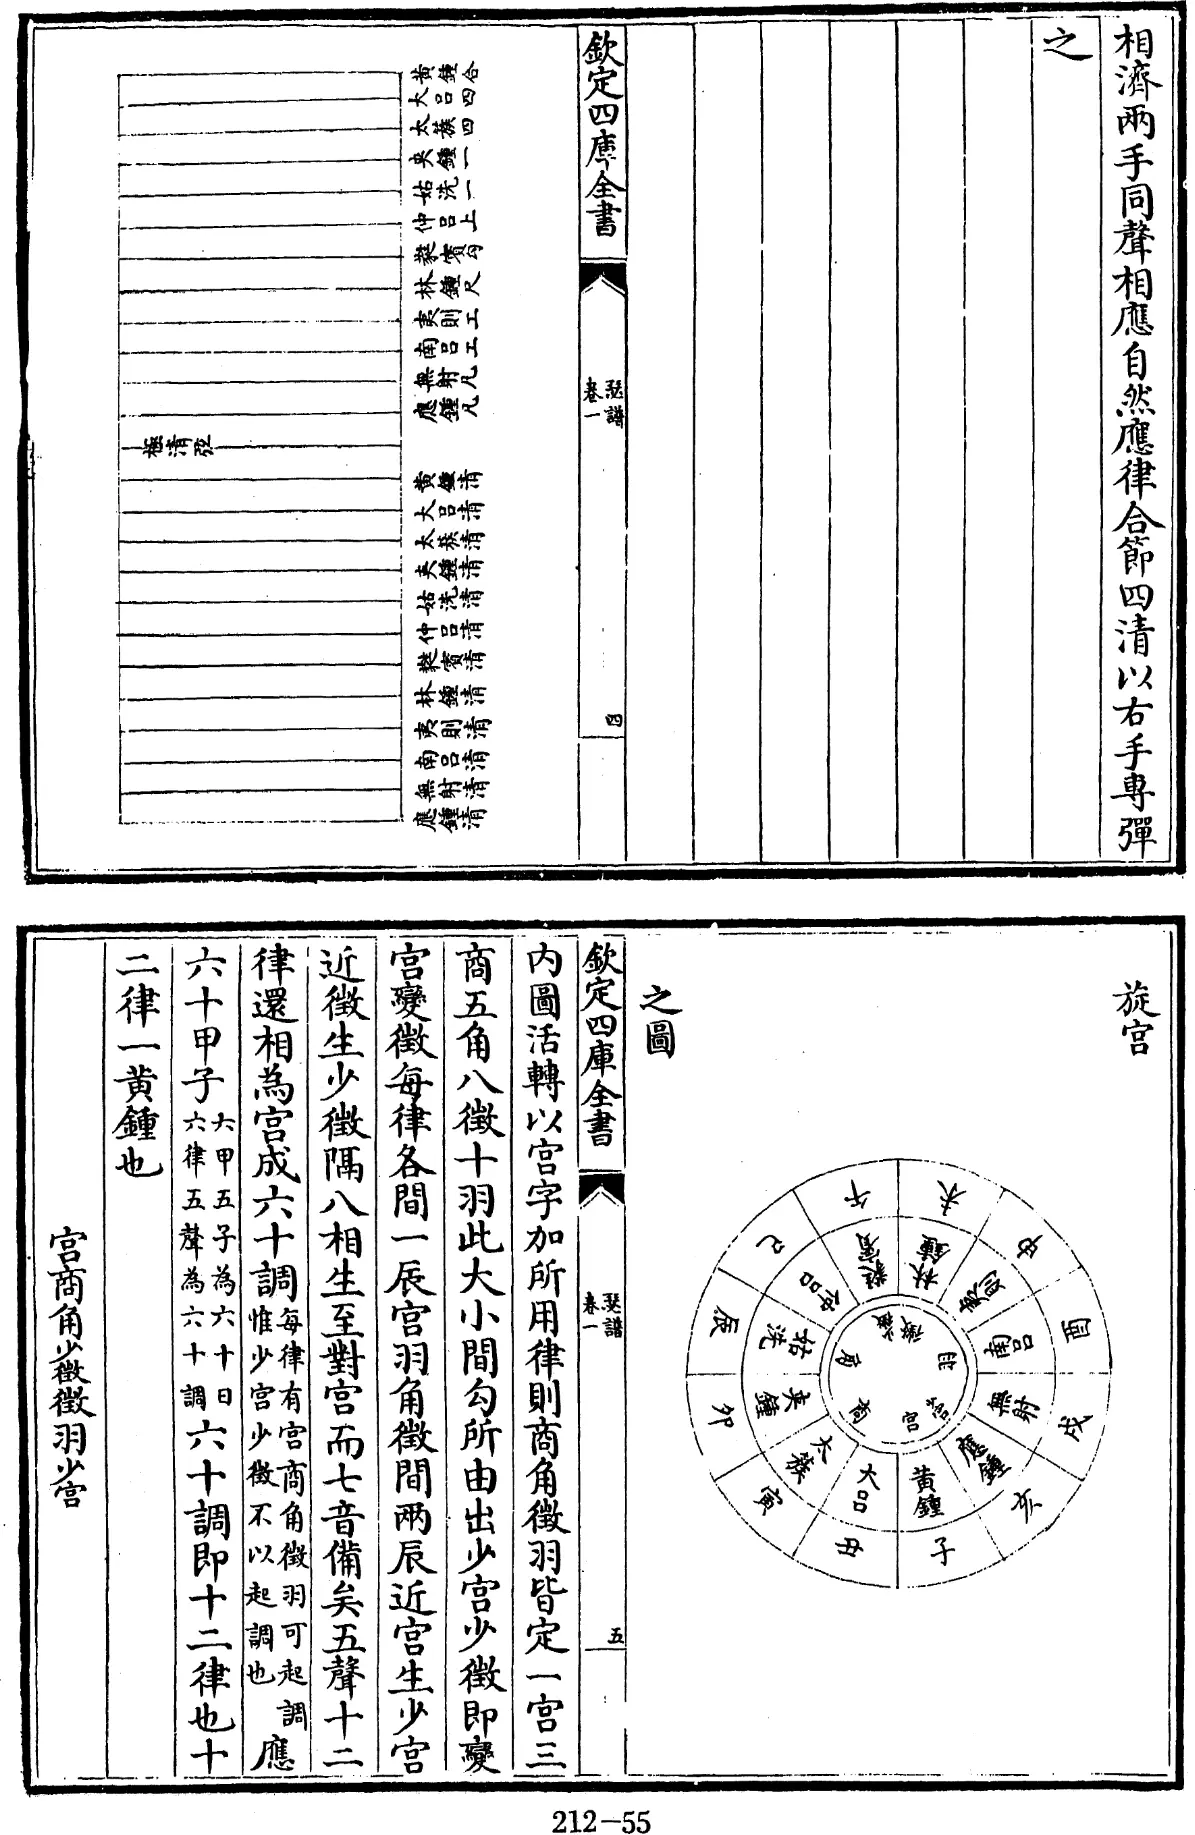 相濟兩手同聲相應自然應律合節四清以右手專彈
之
欽定四庫全書
瑟譜
卷一
四
黃鍾合
大呂四
太蔟四
夾鍾一
姑洗一
仲呂上
蕤賓勾
林鍾尺
夷則工
南呂工
無射凡
應鍾凡
極清弦
黃鍾清
大呂清
太蔟清
夾鍾清
姑洗清
仲呂清
蕤賓清
林鍾清
夷則清
南呂清
無射清
應鍾清
旋宮
之圖
子
丑
寅
卯
辰
巳
午
未
申
酉
戌
亥
黃鍾
大呂
太蔟
夾鍾
姑洗
仲呂
蕤賓
林鍾
夷則
南呂
無射
應鍾
宮
商
角
少徵
徵
羽
少宮
欽定四庫全書
瑟譜
卷一
五
内圖活轉以宮字加所用律則商角徵羽皆定一宮三
商五角八徵十羽此大小間勾所由出少宮少徵即變
宮變徵每律各間一辰宮羽角徵間兩辰近宮生少宮
近徵生少徵隔八相生至對宮而七音備矣五聲十二
律還相為宮成六十調每律有宮商角徵羽可起調惟少宮少徵不以起調也應
六十甲子六甲五子為六十日六律五聲為六十調六十調即十二律也十
二律一黃鍾也
宮商角少徵徵羽少宮
212-55